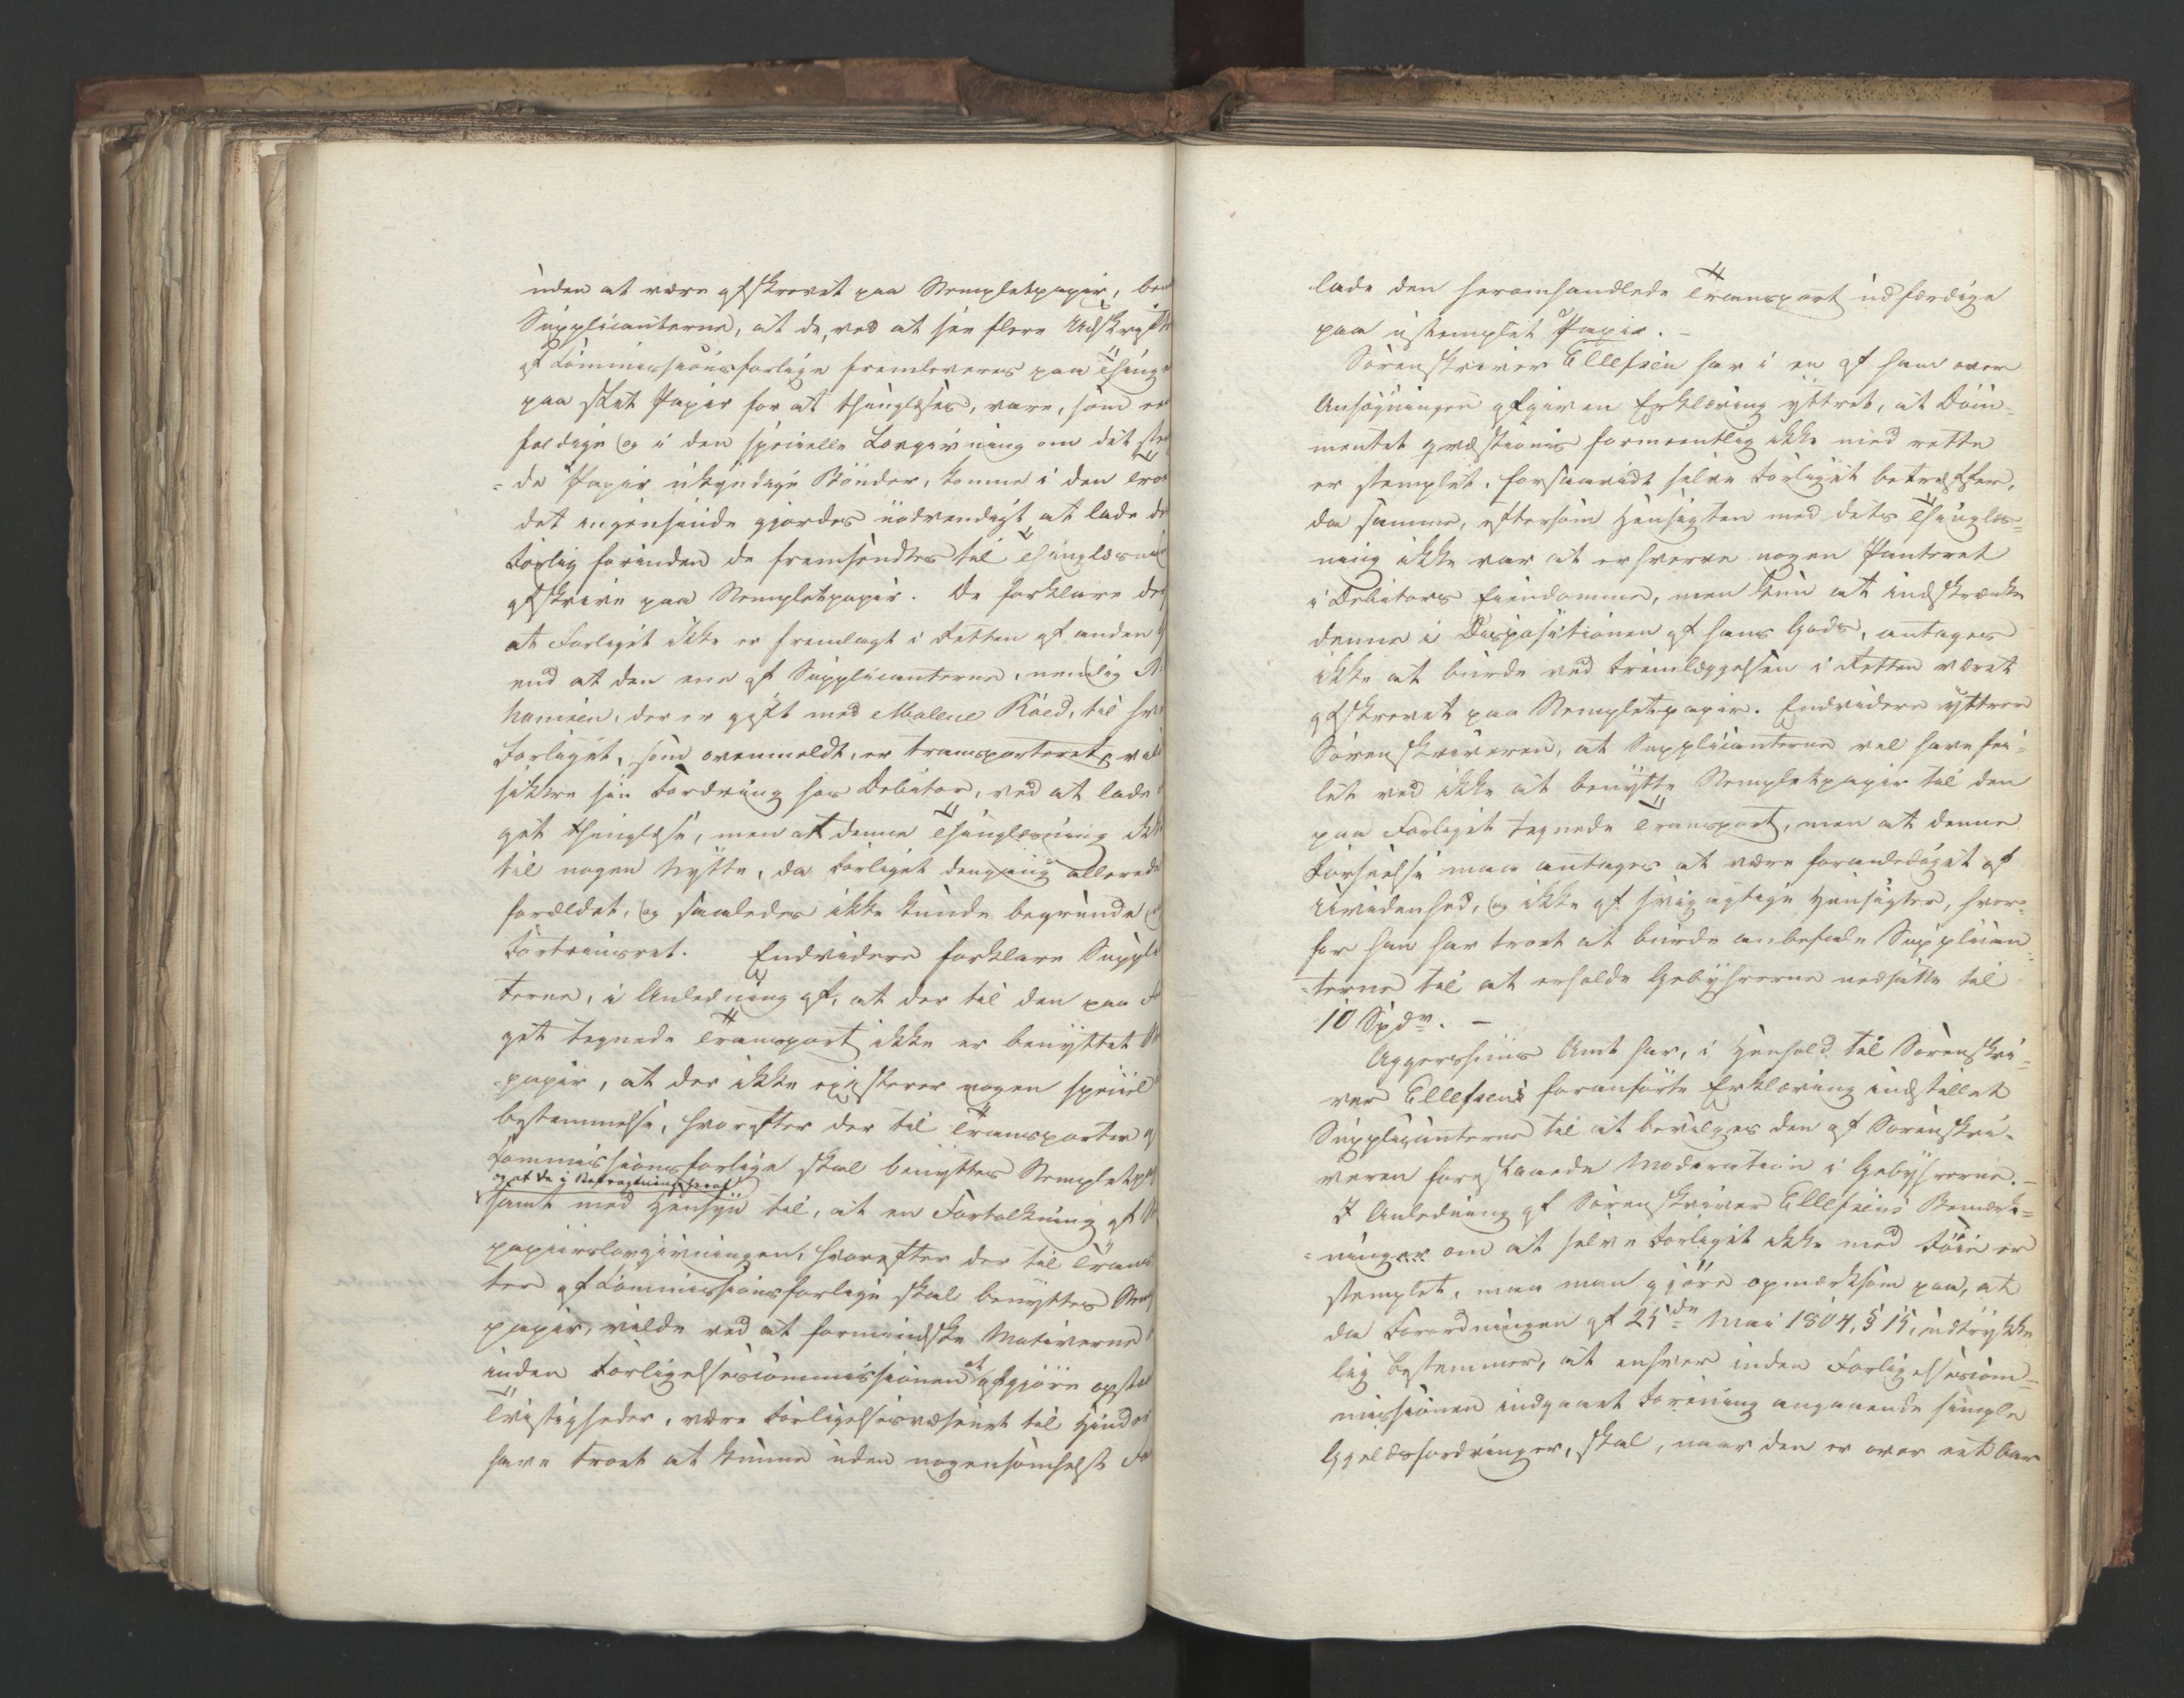 uden at være afskrevet paa Stempletpapir, be
Supplicanterne, at de, ved at see flere Udskrifte
af Commissionsforlige fremleveres paa Thinge
paa slet Papir for at thinglæses, vare, som een
foldige og i den specielle Lovgivning om det ste
de Papir ukyndige Bönder, komne i den Tro
det ingensinde gjordes nödvendigt at lade de
Forlig forinden de fremsendtes til Thinglæsnin
afskrive paa Stempletpapir. De forklare de
at Forliget ikke er fremlagt i Retten af anden
end at den ene af Supplicanterne, nemlig
hansen, der er gift med Malene Röed, til hv
Forliget, som ovenmeldt, er transporteret, vil
sikkre sin Fordring hos Debitor, ved at lade
get thinglæse, men at denne Thinglæsning ikk
til nogen Nytte, da Forliget dengang allerede
forældet, og saaledes ikke kunde begrunde
Fortrinsret. Endvidere forklare Suppli
terne, i Anledning af, at der til den paa Fo
get tegnede Transport ikke er benyttet St
papir, at der ikke existerer nogen speciel
bestemmelse, hvorefter der til Transporter af
Commissionsforlige skal benyttes Stempletpa
og at de i Betragtning heraf
samt med Hensyn til, at en Fortolkning af St
papiirslovgivningen, hvorefter der til Trans
ter af Commissionsforlige skal benyttes Stem
papir, vilde ved at formindske Motiverne
inden Forligelsescommissionen at afgjöre opsta
Tvistigheder, være Forligelsesvæsenet til Hinder
have troet at kunne uden nogensomhelst
lade den heromhandlede Transport udfærdige
paa ustemplet Papir. –
Sörenskriver Ellefsen har i en af ham over
Ansögningen afgiven Erklæring yttret, at Docu-
mentet qvæstionis formeentlig ikke med rette
er stemplet, forsaavidt selve Forliget betræffer,
da samme, eftersom Hensigten med dets Thinglæs-
ning ikke var at erhverve nogen Panteret
i Debitors Eiendomme, men kun at indskrænke
denne i Dispositionen af hans Gods, antages
ikke at burde ved Fremlæggelsen i Retten været
afskrevet paa Stempletpapir. Endvidere yttrer
Sörenskriveren, at Supplicanterne vel have fei-
let ved ikke at benytte Stempletpapir til den
paa Forliget tegnede Transport, men at denne
Forseelse maa antages at være foranlediget af
Uvidenhed, og ikke af svigagtige Hensigter, hvor-
for han har troet at burde anbefale Supplican-
terne til at erholde Gebyhrerne nedsatte til
10 Spdr. –
Aggershuus Amt har, i Henhold til Sörenskri-
ver Ellefsens foranförte Erklæring indstillet
Supplicanterne til at bevilges den af Sörenskri-
veren foreslaaede Moderation i Gebyhrerne. –
I Anledning af Sörenskriver Ellefsens Bemærk-
ninger om at selve Forliget ikke med Föie er
stemplet, maa man gjöre opmærksom paa, at
da Forordningen af 25de Mai 1804, § 15, udtrykke
lig bestemmer, at enhver inden Forligelsescom-
missionen indgaaet Forening angaaende simple
Gjeldsfordringer, skal, naar den er over eet Aar